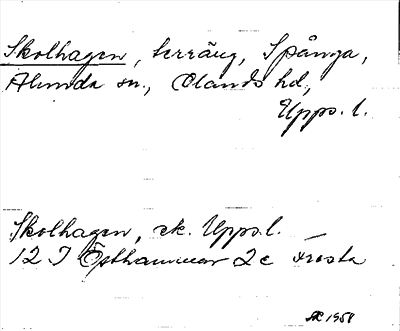 Skolhagen, terräng, Spånga,
Alunda sn., Olands hd,
Upps. l.
Skolhagen, ek. Upps. l.
12 I Östhammar 2 c
1958